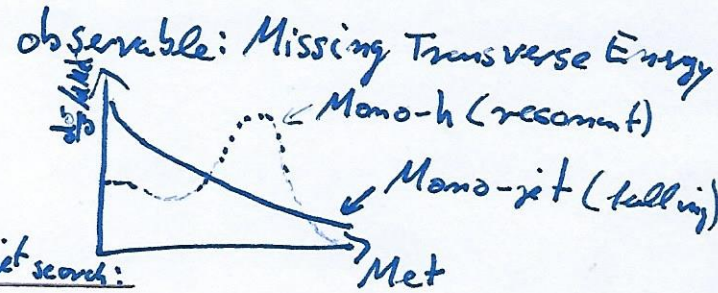 observable: Missing Transverse Energy
Mono-h (resonant)
Mono-jet (falling)
Met
jet search: